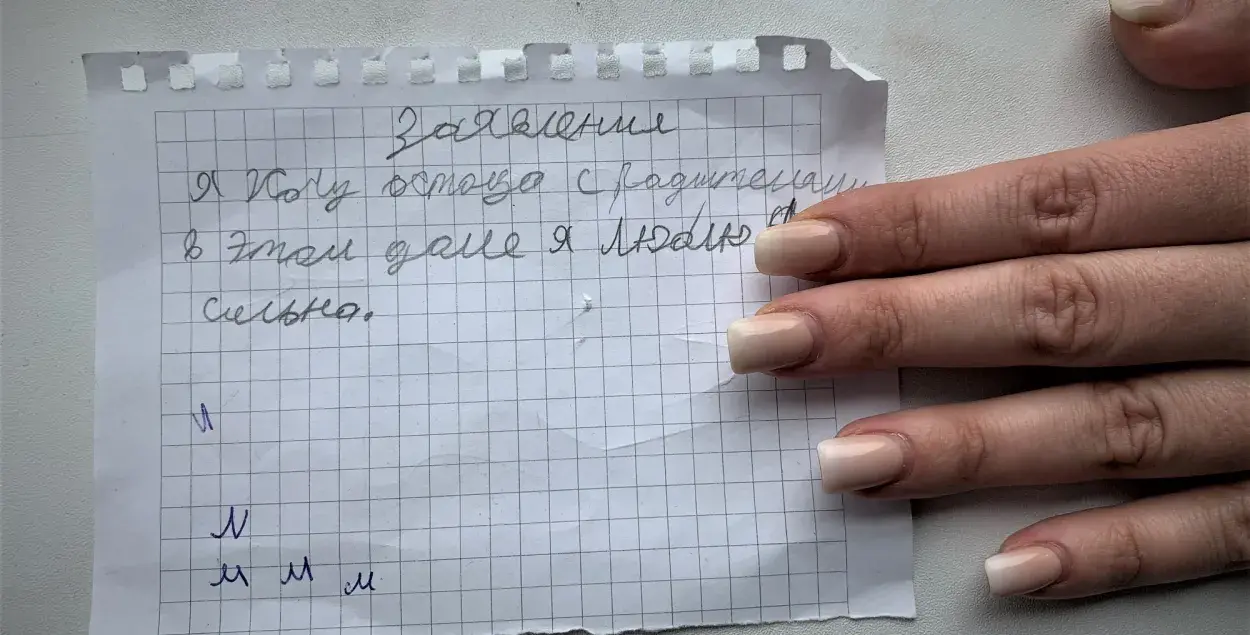 Заявления
Я хочу астаца с радителами
в этом доме я люблю
сильно.
и
N
м м м